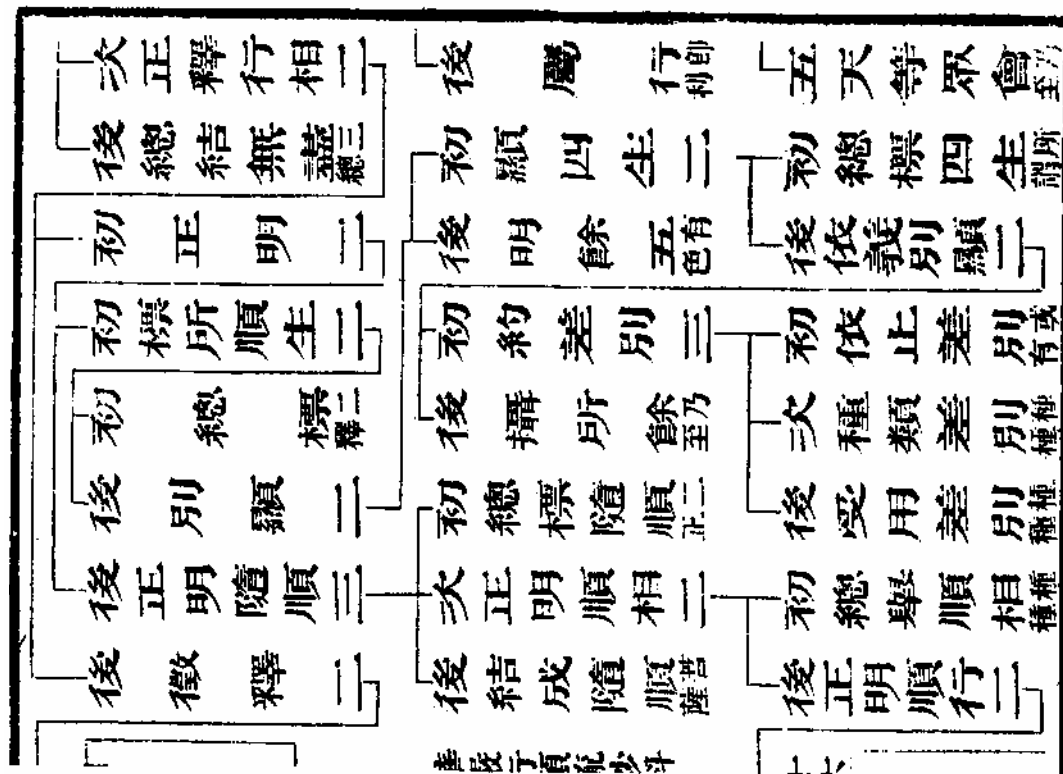 次正釋行相二
後總結無盡三總
初正明二
初標所順生二
初總標二釋
後別顯二
後正明隨順三
後徵釋二
後屬行即利
初顯四生二
後明餘五有色
初約差別三
後攝所餘乃至
初總標隨順二正
次正明順相二
後結成隨順菩薩
五天等眾會乃至
初總標四生所謂
後依義別顯二
初依止差別或有
次種類差別種種
後受用差別種種
初總舉順相種種
後正明順行二